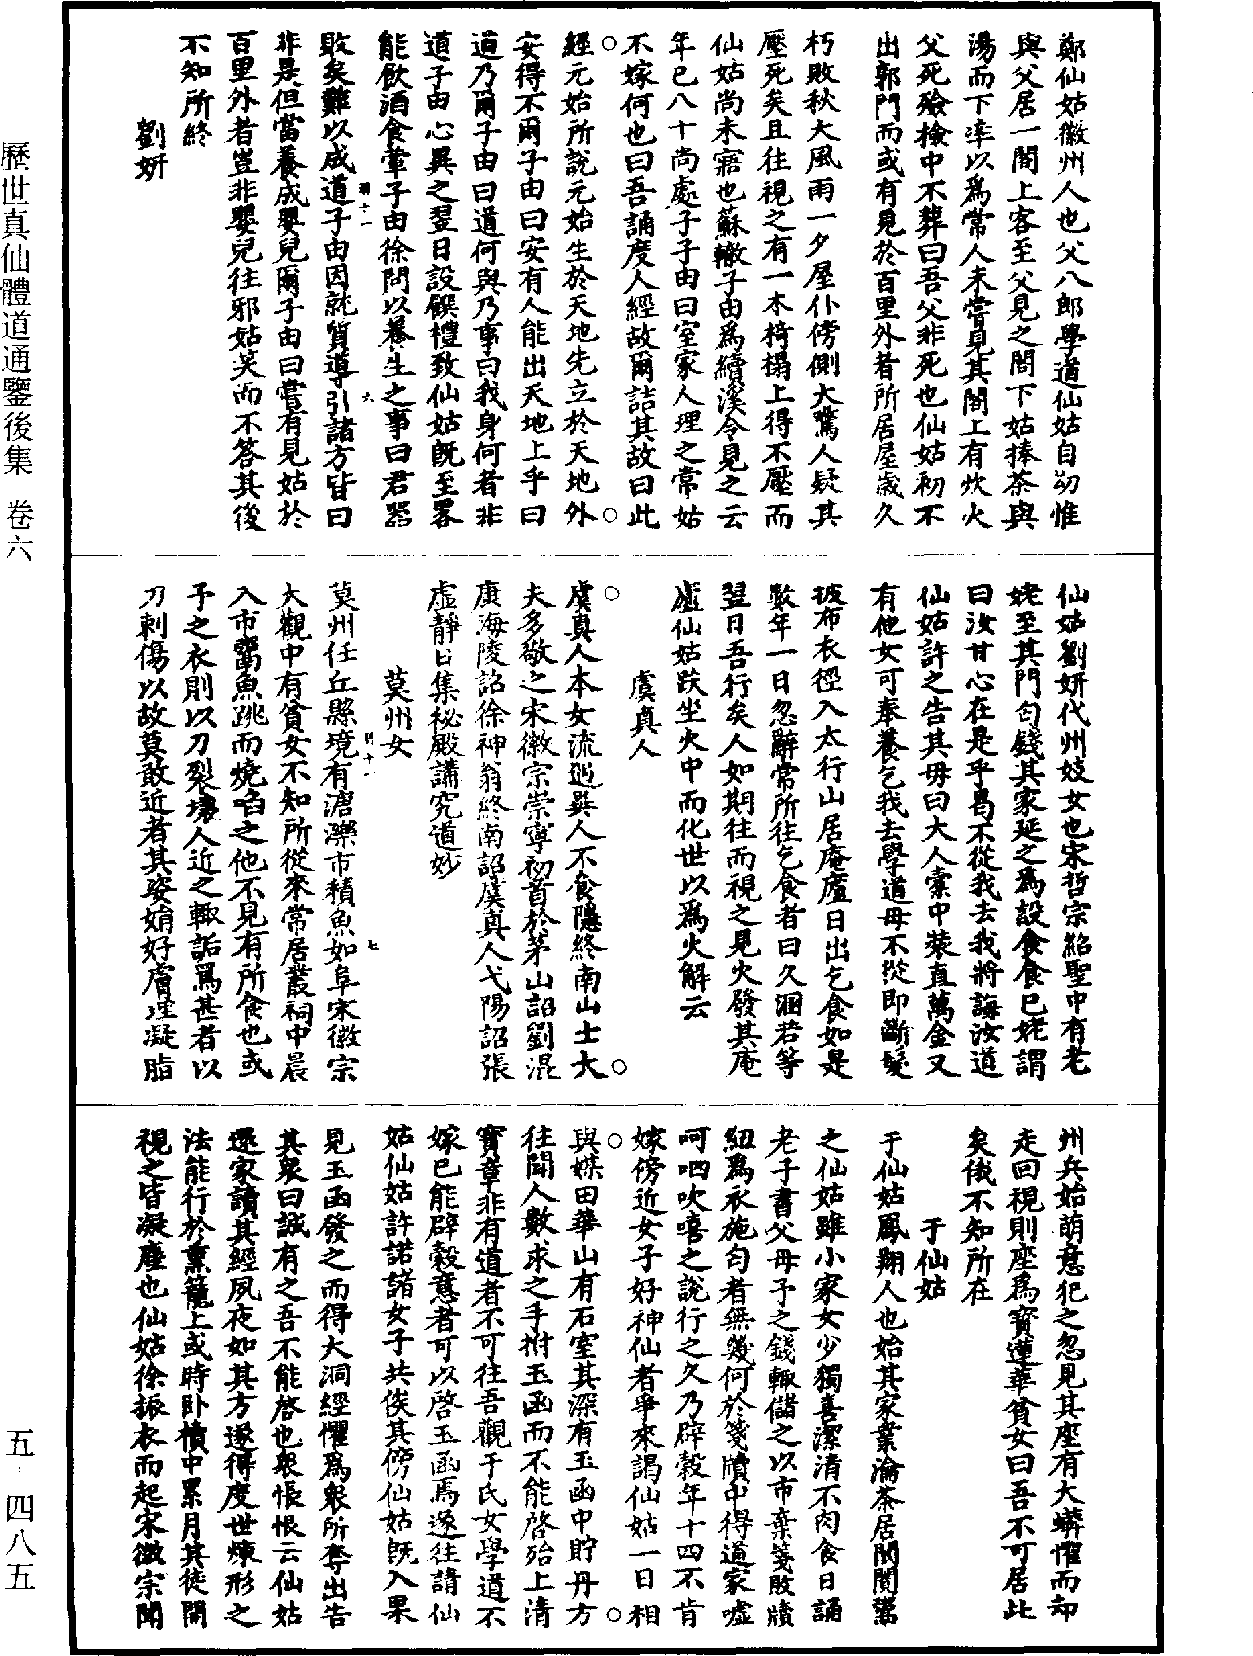 歷世真仙體道通鑒後集 卷六
五·四八五
鄭仙姑徽州人也父八郎學道仙姑自幼惟
與父居一閣上客至父見之閣下姑捧茶與
湯而下率以為常人未嘗見其閣上有炊火
父死殮棺中不葬曰吾父非死也仙姑初不
出郭門而或有見於百里外者所居屋歲久
朽敗秋大風雨一夕屋仆傍側大驚人疑其
壓死矣且往視之有一木椅榻上得不壓而
仙姑尚未寤也蘇轍子由為續溪令見之云
年已八十尚處子子由曰室家人理之常姑
不嫁何也曰吾誦度人經故爾詰其故曰此
經元始所說元始生於天地先立於天地外
安得不爾子由曰安有人能出天地上乎曰
道乃爾子由曰道何與乃事曰我身何者非
道子由心異之翌日設饌禮致仙姑既至畧
能飲酒食葷子由徐問以養生之事曰君器
敗矣難以成道子由因就質導引諸方皆曰
非是但當養成嬰兒爾子由曰嘗有見姑於
百里外者豈非嬰兒往邪姑笑而不答其後
不知所終
劉妍
仙姑劉妍代州妓女也宋哲宗紹聖中有老
姥至其門匄錢其家延之為設食食已姥謂
曰汝甘心在是乎曷不從我去我將誨汝道
仙姑許之告其母曰大人橐中裝直萬金又
有他女可奉養乞我去學道母不從即斷髮
披布衣徑入太行山居庵廬日出乞食如是
數年一日忽辭常所往乞食者曰久溷若等
翌日吾行矣人如期往而視之見火發其庵
廬仙姑趺坐火中而化世以為火解云
虞真人
虞真人本女流遇異人不食隱終南山士大
夫多敬之宋徽宗崇寧初首於茅山詔劉混
康海陵詔徐神翁終南詔虞真人弋陽詔張
虛靜日集祕殿講究道妙
莫州女
莫州任丘縣境有濤濼市積魚如阜宋徽宗
大觀中有貧女不知所從來常居叢祠中晨
入市鬻魚跳而燒啗之他不見有所食也或
予之衣則以刀裂壞人近之輒詬罵甚者以
刀刺傷以故莫敢近者其姿娟好膚理凝脂
州兵始萌意犯之忽見其座有大蟒懼而却
走回視則座為寶蓮華貧女曰吾不可居此
矣俄不知所在
于仙姑
于仙姑鳳翔人也始其家業淪茶居闤闠鬻
之仙姑雖小家女少獨喜潔清不肉食日誦
老子書父母予之錢輒儲之以市棄箋敗牘
紐為衣施匄者無幾何於箋牘中得道家噓
呵呬吹嘻之說行之久乃辟穀年十四不肯
嫁傍近女子好神仙者爭來謁仙姑一日相
與媒田華山有石室其深有玉函中貯丹方
往聞人數求之手拊玉函而不能啓殆上清
寶章非有道者不可往吾觀于氏女學道不
嫁已能辟穀意者可以啓玉函焉遂往請仙
姑仙姑許諾諸女子共俟其傍仙姑既入果
見玉函發之而得大洞經懼為衆所奪出告
其衆曰誠有之吾不能啓也衆悵恨云仙姑
還家讀其經夙夜如其方遂得度世煉形之
法能行於熏籠上或時卧樻中累月其徒開
視之皆凝塵也仙姑徐振衣而起宋徽宗聞